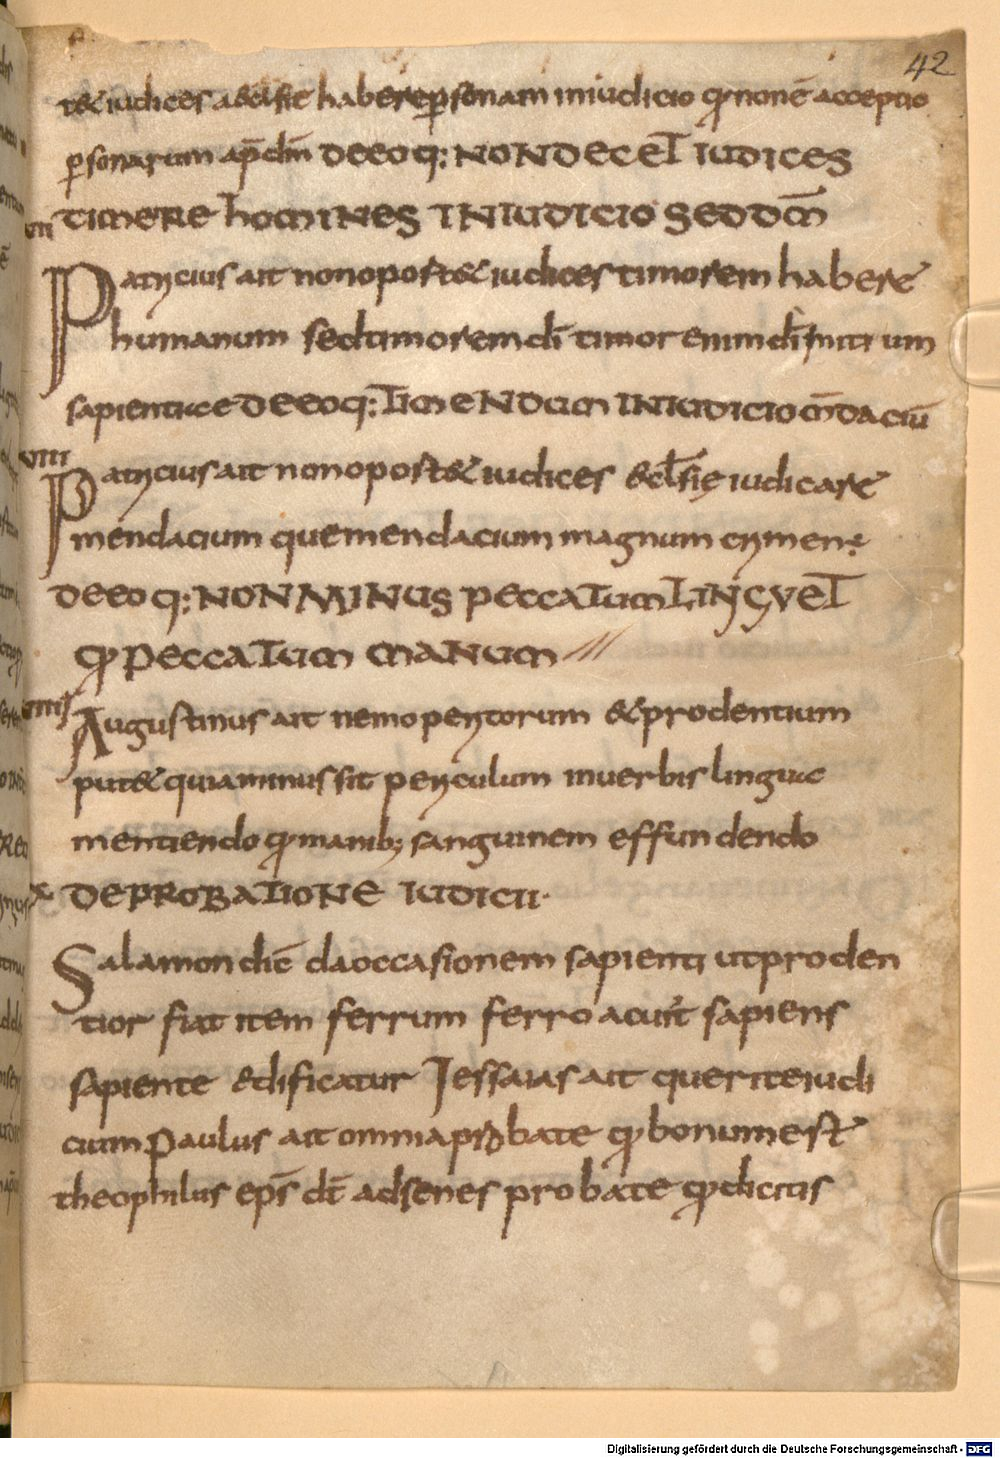 42
t& iudices aeclesie habere ꝑsonam in iudicio qđ non ē acceptio
ꝑsonarum apđ dm̄ DEEOQ: NON DECET IUDICES
VII TIMERE HOMINES IN IUDICIO SED DM̄
Patricius ait non oport& iudices timorem habere
humanum sed timorem dī timor enim dī initium
sapientiae DEEOQ: TIMENDUM IN IUDICIO MDACIŪ
VIII Patricius ait non oport& iudices &clesię iudicare
mendacium que mendacium magnum crimen ē
DEEOQ: NON MINUS PECCATUM LINGVE T
qđ PECCATUM MANUM
VIIII Augustinus ait nemo peritorum & prodentium
put& quia minus sit periculum in verbis linguae
mentiendo qđ manib; sanguinem effundendo
X DE PROBATIONE IUDICII·
Salamon dic̄ da occasionem sapienti ut proden
tior fiat item ferrum ferro acuit sapiens
sapiente &dificatur Jessaias ait querite iudi
cium Paulus ait omnia probate qđ bonum est
theophilus ep̄s dt̄ ad senes probate qđ dicitis
Digitalisierung gefördert durch die Deutsche Forschungsgemeinschaft - DFG